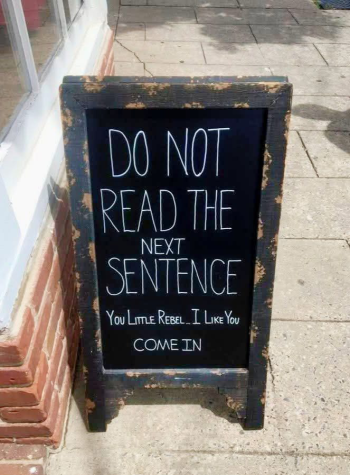 DO NOT
READ THE
NEXT
SENTENCE
YOU LITTLE REBEL... I LIKE YOU
COME IN